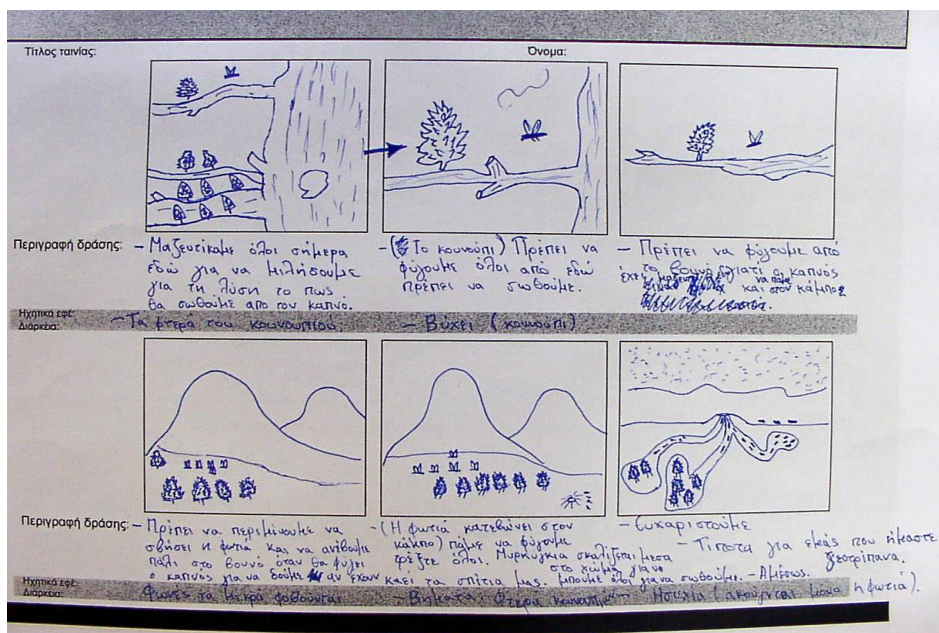 Τίτλος ταινίας: Όνομα:
Περιγραφή δράσης:
- Μαζευτίκαμε όλοι σήμερα
εδώ για να μιλήσουμε
για τη λύση το πως
θα σωθούμε απο τον καπνό.
- (Το κουνούπι) Πρέπει να
φύγουμε όλοι από εδώ
πρέπει να σωθούμε.
- Πρέπει να φύγουμε από
το βουνό γιατί ο καπνός
έχει να πάμε
και στον κάμπο
Ηχητικά εφέ:
Διάρκεια:
- Τα φτερά του κουνουπιού.
- Βύχει (κουνούπι)
Περιγραφή δράσης:
- Πρέπει να περιμένουμε να
σβήσει η φωτιά και να ανέβουμε
πάλι στο βουνό όταν θα φύγει
ο καπνός για να δούμε αν έχουν καεί τα σπίτια μας.
- (Η φωτιά κατεβαίνει στον
κάμπο) πάμε να φύγουμε
τρέξτε όλοι. Μυρμήγκια σκαλίζεται μέσα
στο χώμα για να
μπούμε όλοι για να σωθούμε. - Αμέσως.
- Ευχαριστούμε
- Τίποτα για εμάς που είμαστε
γεωτρύπανα.
Ηχητικά εφέ:
Διάρκεια:
Φωνές τα μικρά φοβούνται
- Βήματα. Φτερά κουνουπιών
- Ησυχία (ακούγεται μόνο η φωτιά).